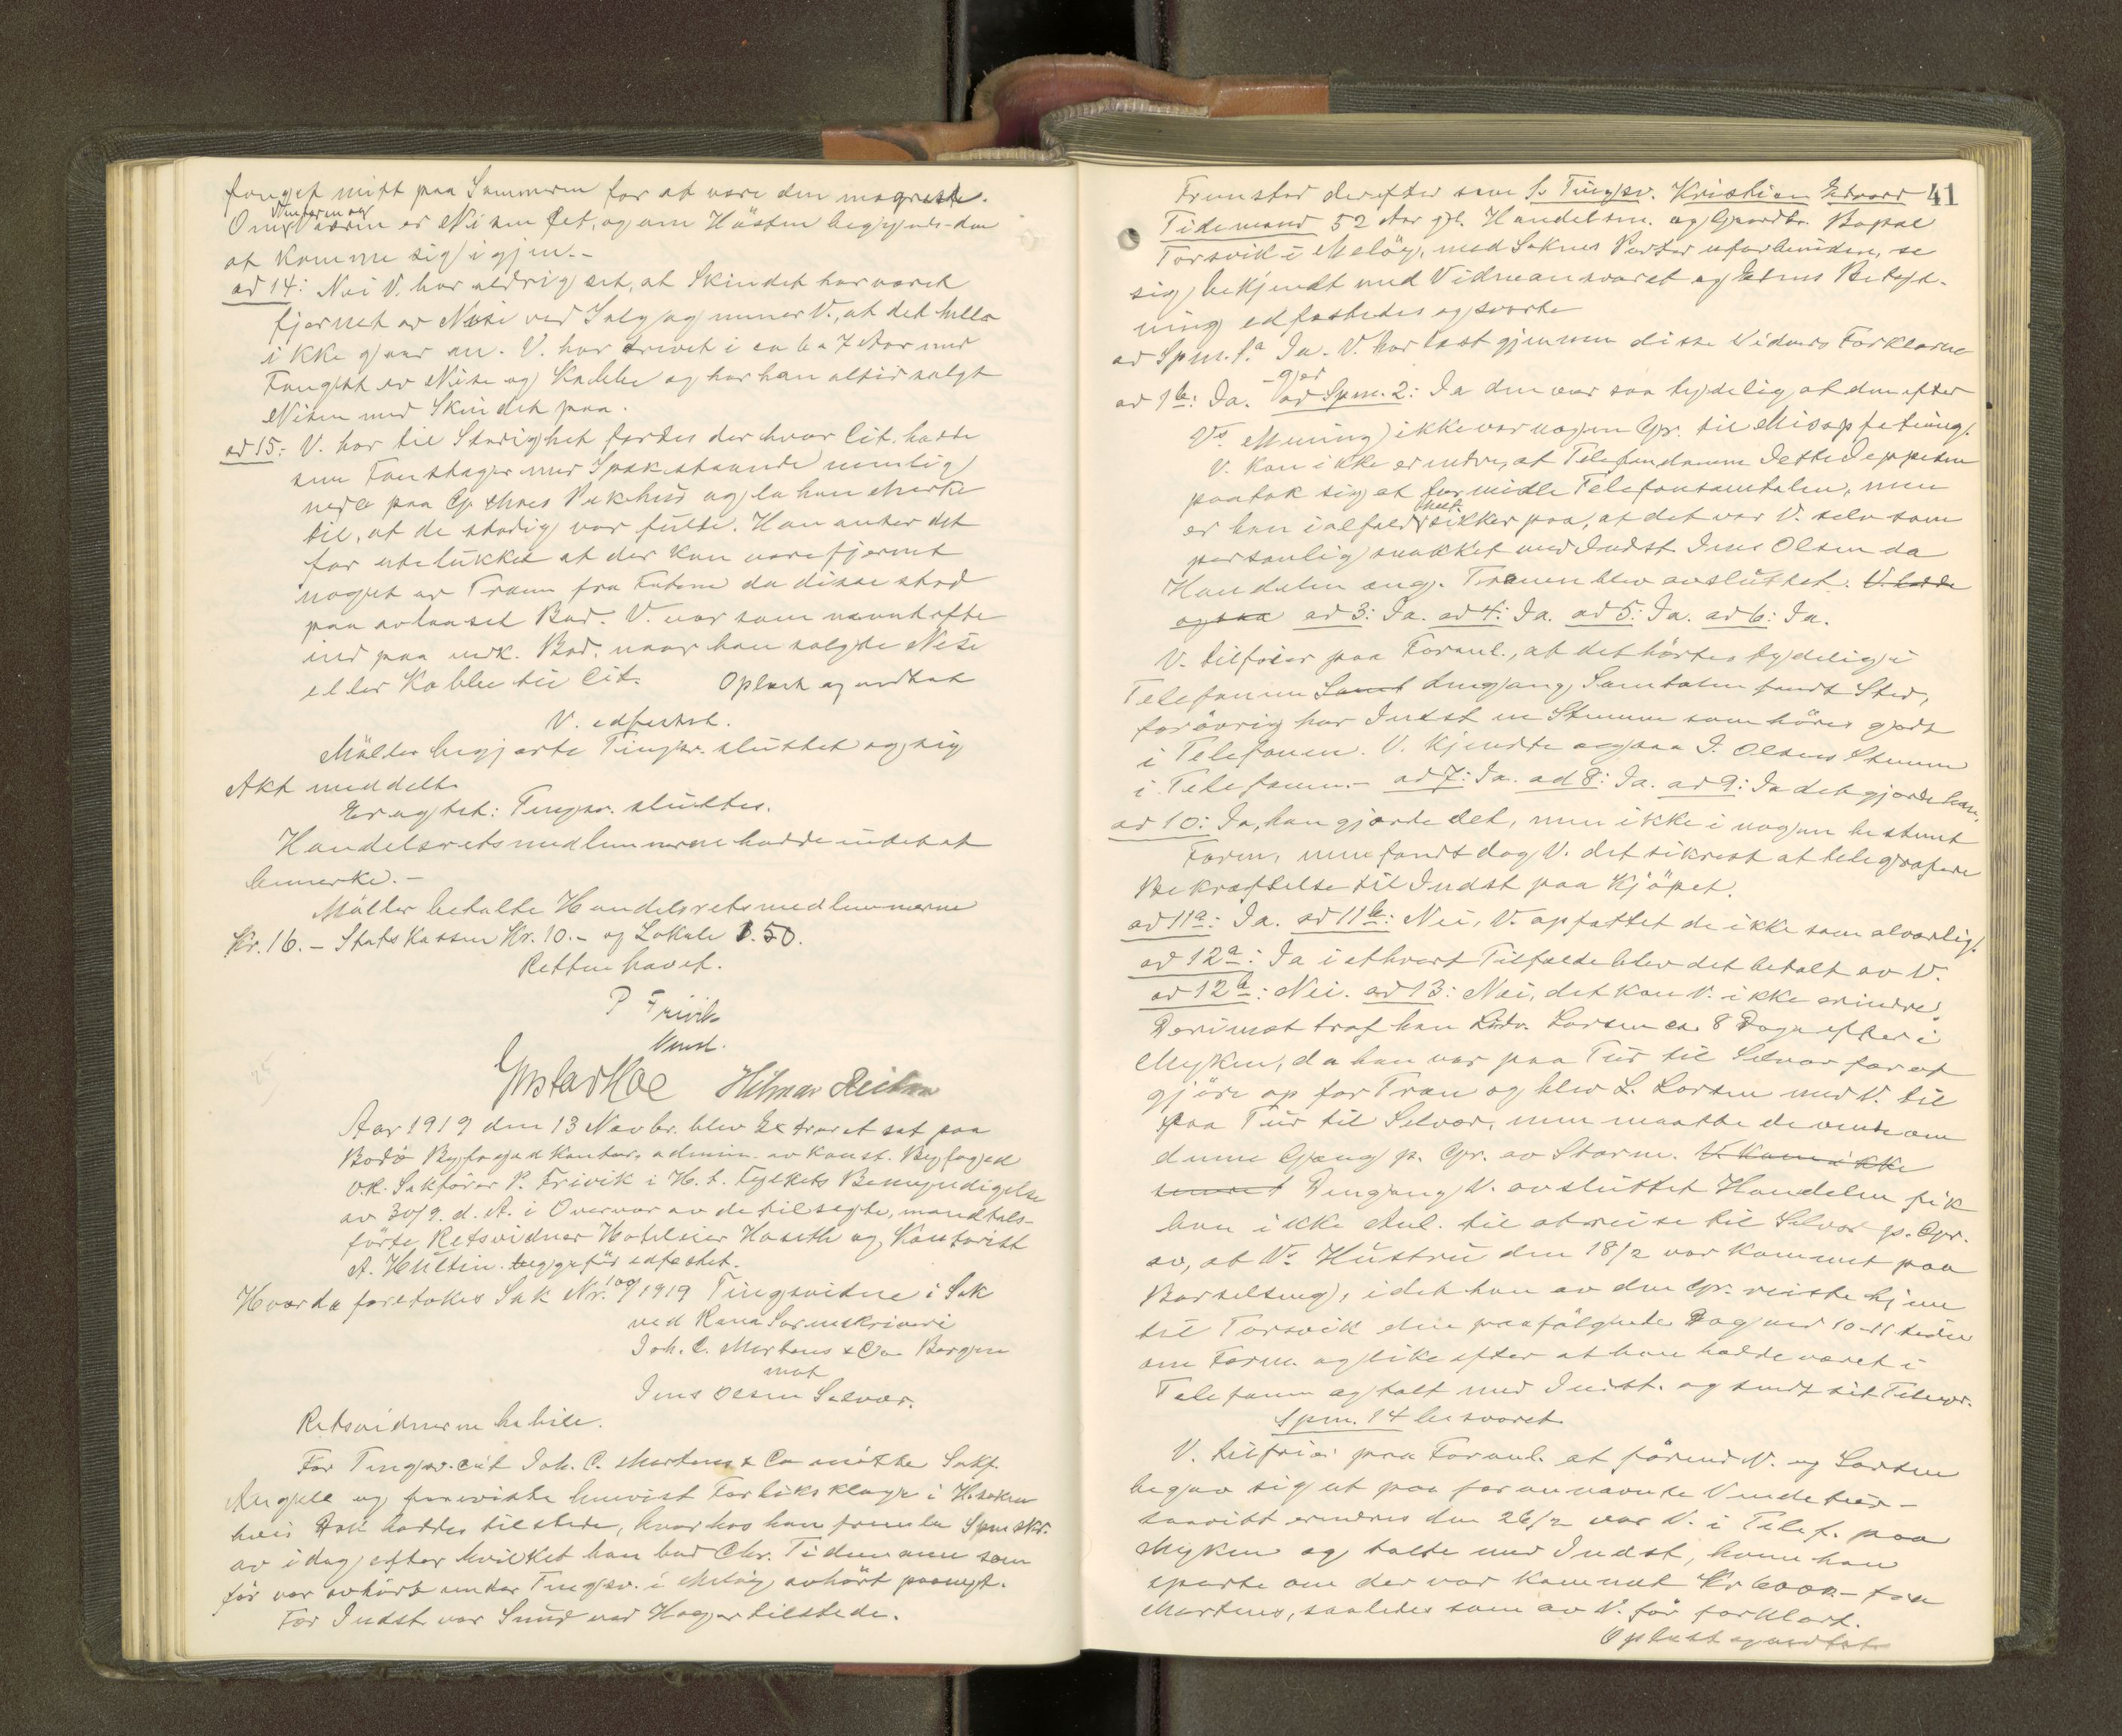 fanget mitt paa Sommeren for at være den magreste.
Om Vinteren og Vaaren er Nisen fet, og om Høsten begynder den
at komme sig igjen.-
ad 14: Nei V. har aldrig set, at Skindet har været
fjernet av Nise ved Salg og mener V., at det heller
ikke gaar an. V. har drevet i ca 6 a 7 Aar med
Fangst av Nise og Kobbe og har han altid solgt
Nisen med Skindet paa.
ad 15: V. har til Stadighet færdes der hvor Cit. hadde
sine Tran med Spæk staaende nemlig
nede paa Pakhus og la han Merke
til, at de stadig var fulde. Han anser det
for utelukket at der kan være fjernet
noget av Tranen fra Fatene da disse stod
paa avlaaset Bod. V. var som nævnt ofte
ind paa nævnte Bod, naar han solgte Nise
eller Kobbe til Cit. Oplæst og vedtat
V. edfæstet.
Møller begjærte Tingsv. sluttet og sig
Akt meddelt.
Eragtet: Tingsv. sluttes.
Handelsretsmedlemmerne hadde intet at
bemerke.-
Møller betalte Handelsretsmedlemmerne
Kr. 16.- Statskassen Kr. 10.- og Lokale 1.50.
Retten hævet.
P Frivik
Konst.
Gustav Moe Hilmar
Aar 1919 den 13 Novbr. blev Extraret sat paa
Bodø Byfogedkontor, admin. av konst. Byfoged
O.R. Sakfører P. Frivik i H. t. Fylkets Bemyndigelse
av 30/9. d. A. i Overvær av de tilsagte, mandtals-
førte Retsvidner Hoteleier Haseth og Kontorist
A. Hultin. begge før edfæstet.
Hvorda foretokes Sak Nr. 100/1919 Tingsvidne i Sak
ved Rana Sorenskriveri
Joh. C. Martens & Co Bergen
mot
Jens Olsen Selvær.
Retsvidnerne habile.
For Tingsv. cit Joh. C. Martens & Co møtte Sakf.
Angell og fremviste henvist Forliksklage i H.saken
hvis Akt haddes tilstede, hvorhos han fremla Spm skr.
av idag efter hvilket han bad Chr. Tidemann som
før var avhørt under Tingsv. i Meløy avhørt paanyt.
For Indst. var Smed ved Hager tilstede.
41
Fremstod derefter som 1. Tingsv. Kristian Edvard
Tidemand 52 Aar gl. Handelsm. og Gaardbr. Bopæl
Torsvik i Meløy, med Sakens Parter uforbunden, se
sig bekjendt med Vidneansvaret og Edens Betyd-
ning edfæstedes og svarte
ad Spm. 1.a Ja. V. har læst gjennem disse Vidners Forklarin-
-ger
ad 1b: Ja. ad Spm. 2: Ja den var saa tydelig, at den efter
Vs Mening ikke var nogen Gr. til Misopfatning.
V. kan ikke erindre, at Telefondamen
paatok sig at formidle Telefonsamtalen, men
er han ialfald helt sikker paa, at det var V. selv som
personlig snakket med Indst. Jens Olsen da
Handelen ang. Tranen blev avsluttet. V. hadde
ogsaa ad 3: Ja. ad 4: Ja. ad 5: Ja. ad 6: Ja.
V. tilføier paa Foranl., at det hørtes tydelig i
Telefonen Samt dengang Samtalen fandt Sted,
forøvrig har Indst en Stemme som høres godt
i Telefonen. V. kjendte ogsaa J. Olsens Stemme
i Telefonen.- ad 7: Ja. ad 8: Ja. ad 9: Ja det gjorde han.
ad 10: Ja, han gjorde det, men ikke i nogen bestemt
Form, men fandt dog V. det sikrest at telegrafere
Bekræftelse til Indst paa Kjøpet.
ad 11a: Ja. ad 11b: Nei, V. opfattet de ikke som alvorlig.
ad 12a: Ja i ethvert Tilfælde blev det betalt av V.
ad 12b: Nei. ad 13: Nei, det kan V. ikke erindre.
Derimot traf han Ludv. Larsen ca. 8 Dage efter i
Myken, da han var paa Tur til Selvær for at
gjøre op for Tran og blev L. Larsen med V. til
paa Tur til Selvær, men maatte de vende om
denne Gang p. Gr. av Storm. V. kom ikke
senere t Dengang V. avsluttet Handelen fik
han ikke Anl. til at reise til Selvær p. Gr.
av, at Vs Hustru den 18/2 var kommet paa
Barselseng, idet han av den Gr. reiste hjem
til Torsvik den paafølgende Dag ved 10-11 tiden
om Form. og like efter at han hadde været i
Telefonen og talt med Indst. og sendt sit Telegr.
Spm. 14 besvaret.
V. tilføier paa Foranl. at førend V. og Larsen
begav sig ut paa forannævnte Vendetur -
saavidt erindres den 26/2 var V. i Telef. paa
Myken og talte med Indst, hvem han
spurte om der var kommet Kr 6000.- fra
Martens, saaledes som av V. før forklart.
Oplæst og vedtat